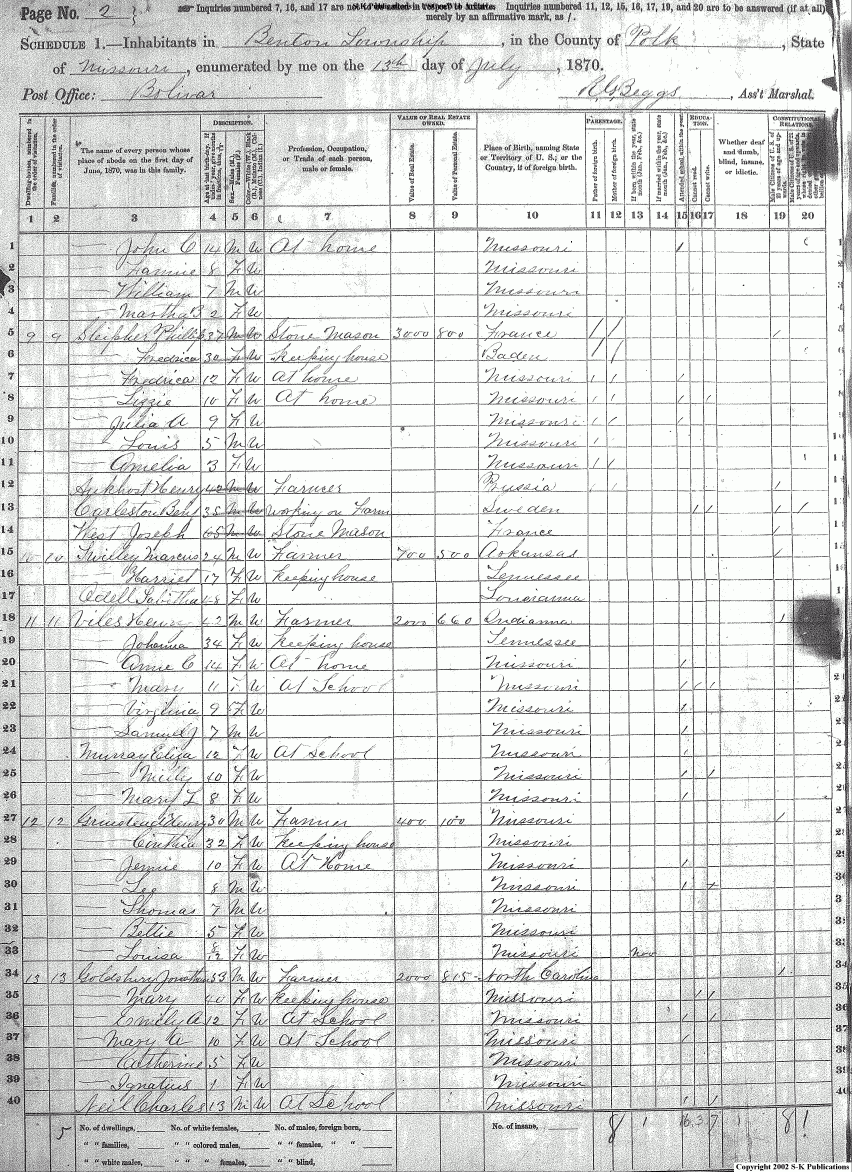 Page No. 2
Inquiries numbered 7, 16, and 17 are not to be asked in respect to infants. Inquiries numbered 11, 12, 15, 16, 17, 19, and 20 are to be answered (if at all)
merely by an affirmative mark, as /.
SCHEDULE 1.—Inhabitants in Benton Township, in the County of Polk, State
of Missouri, enumerated by me on the 13th day of July, 1870.
Post Office: Bolivar Beggs, Ass't Marshal.
DESCRIPTION. VALUE OF REAL ESTATE OWNED. PARENTAGE. EDUCATION. CONSTITUTIONAL RELATIONS.
Dwelling-houses, numbered in the order of visitation. Families, numbered in the order of visitation. The name of every person whose place of abode on the first day of June, 1870, was in this family. Profession, Occupation, or Trade of each person, male or female. Value of Real Estate. Value of Personal Estate. Place of Birth, naming State or Territory of U. S.; or the Country, if of foreign birth. Father of foreign birth. Mother of foreign birth. Attended school within the year. Cannot read. Cannot write. Whether deaf and dumb, blind, insane, or idiotic.
1 2 3 4 5 6 7 8 9 10 11 12 13 14 15 16 17 18 19 20
1 — John C 14 M W At home Missouri /
2 — Fannie 8 F W Missouri
3 — William 7 M W Missouri
4 — Martha B 2 F W Missouri
5 9 9 Sleipher Phillip 37 M W Stone Mason 3000 800 France / / /
6 — Fredrica 30 F W Keeping house Baden / /
7 — Fredrica 12 F W At home Missouri / / /
8 — Lizzie 10 F W At home Missouri / / / /
9 — Julia A 9 F W Missouri / / /
10 — Louis 5 M W Missouri /
11 — Amelia 3 F W Missouri / /
12 Henry 42 M W Farmer Prussia / / /
13 Carleston 35 M W Working on Farm Sweden / / / /
14 West Joseph 65 M W Stone Mason France /
15 10 10 Marcus 24 M W Farmer 700 500 Arkansas /
16 — Harriet 17 F W Keeping house Tennessee
17 Odell Tabitha F W Louisianna
18 11 11 Viles Henry 42 M W Farmer 2000 660 Indianna /
19 — Johanna 34 F W Keeping house Tennessee
20 — Annie C 14 F W At home Missouri /
21 — Mary 11 F W At School Missouri / / /
22 — Virginia 9 F W Missouri /
23 — Samuel J 7 M W Missouri /
24 Murray Eliza 12 F W At School Missouri /
25 — Milly 10 F W Missouri / /
26 — Mary L 8 F W Missouri /
27 12 12 Henry 30 M W Farmer 400 100 Missouri /
28 — Cinthia 32 F W Keeping house Missouri
29 — Jennie 10 F W At Home Missouri /
30 — Lee 8 M W Missouri / +
31 — Thomas 7 M W Missouri
32 — Bettie 5 F W Missouri
33 — Louisa 8/12 F W Missouri Nov
34 13 13 Goldsbury Jonathan 53 M W Farmer 2000 815 North Carolina /
35 — Mary 40 F W Keeping house Missouri / /
36 — Emily A 12 F W At School Missouri / /
37 — Mary A 10 F W At School Missouri / /
38 — Catherine 5 F W Missouri
39 — Ignatius 1 F W Missouri
40 Neil Charles 13 M W At School Missouri / /
5 No. of dwellings, No. of white females, No. of males, foreign born, No. of insane, 8 1 16 3 7 1 8 1
" " families, " " colored males, " " females, " "
" " white males, " " " females, " " blind,
Copyright 2002 S-K Publications